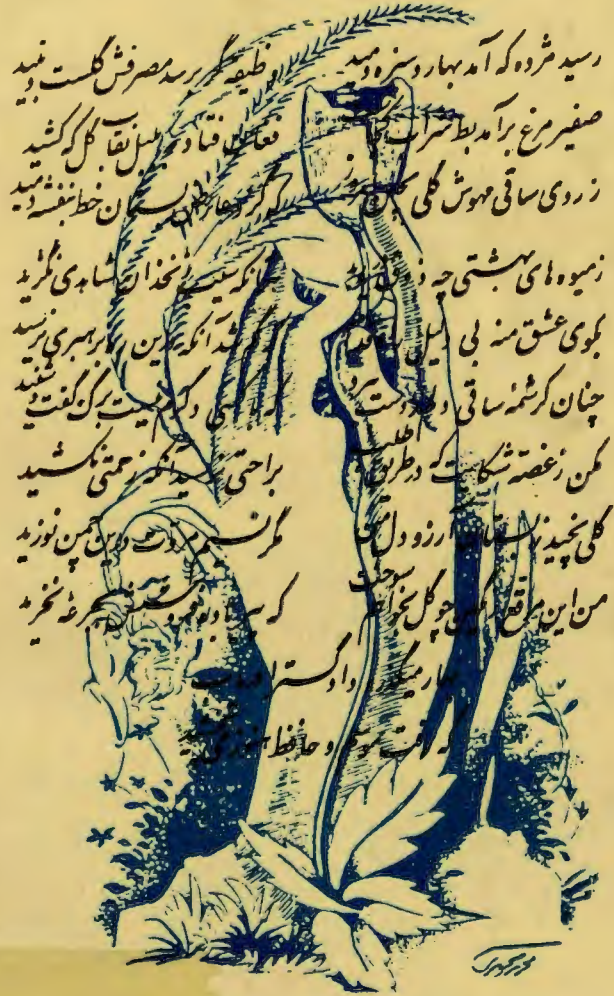 رسید مژده که آمد بهار و سبزه دمید وظیفه گر برسد مصرفش گلست و نبید
صفیر مرغ برآمد بط شراب فغان فتاد بلبل نقاب گل که کشید
ز روی ساقی مهوش گلی بچین که گرد عارض بستان خط بنفشه دمید
ز میوه های بهشتی چه ذوق آنکه سیب زنخدان شاهدی نگزید
بکوی عشق منه بی دلیل راه قدم که گم شد آنکه درین ره برهبری نرسید
چنان کرشمهٔ ساقی دلم ز دست ببرد که با کسی دگرم نیست برگ گفت و شنید
مکن ز غصه شکایت که در طریق طلب براحتی نرسید آنکه زحمتی نکشید
گلی نچید ز بستان آرزو دل من مگر نسیم مروت درین چمن نوزید
من این مرقع رنگین چو گل بخواهم سوخت که پیر باده فروشش بجرعهٔ نخرید
بهار میگذرد دادگسترا دریاب
که رفت موسم و حافظ هنوز می نچشید